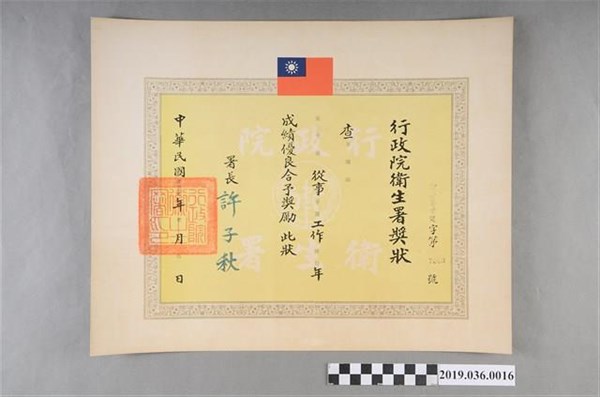 行政院衛生署獎狀
字第
號
查
從事
工作
年
成績優良合予獎勵此狀
署長
許子秋
中華民國
年
月
日
行政院
衛生署
2019.036.0016